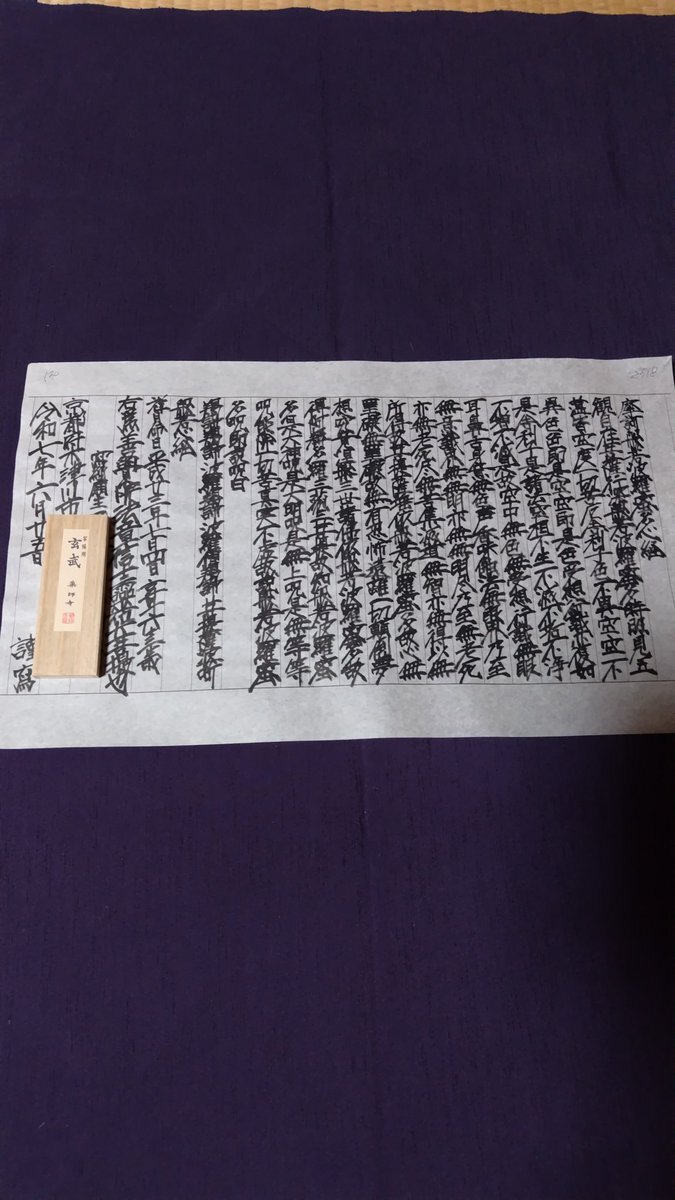 摩訶般若波羅蜜多心経
観自在菩薩行深般若波羅蜜多時照見五
蘊皆空度一切苦厄舎利子色不異空空不
異色色即是空空即是色受想行識亦復如
是舎利子是諸法空相不生不滅不垢不浄
不増不減是故空中無色無受想行識無眼
耳鼻舌身意無色聲香味触法無眼界乃至
無意識界無無明亦無無明尽乃至無老死
亦無老死尽無苦集滅道無智亦無得以無
所得故菩提薩埵依般若波羅蜜多故心無
罣礙無罣礙故無有恐怖遠離一切顛倒夢
想究竟涅槃三世諸仏依般若波羅蜜多故
得阿耨多羅三藐三菩提故知般若波羅蜜
多是大神呪是大明呪是無上呪是無等等
呪能除一切苦真実不虚故説般若波羅蜜
多呪即説呪曰
羯諦羯諦 波羅羯諦 波羅僧羯諦 菩提薩婆訶
般若心経
京都府木津川市
令和七年六月廿五日 謹寫
玄武 薬師寺